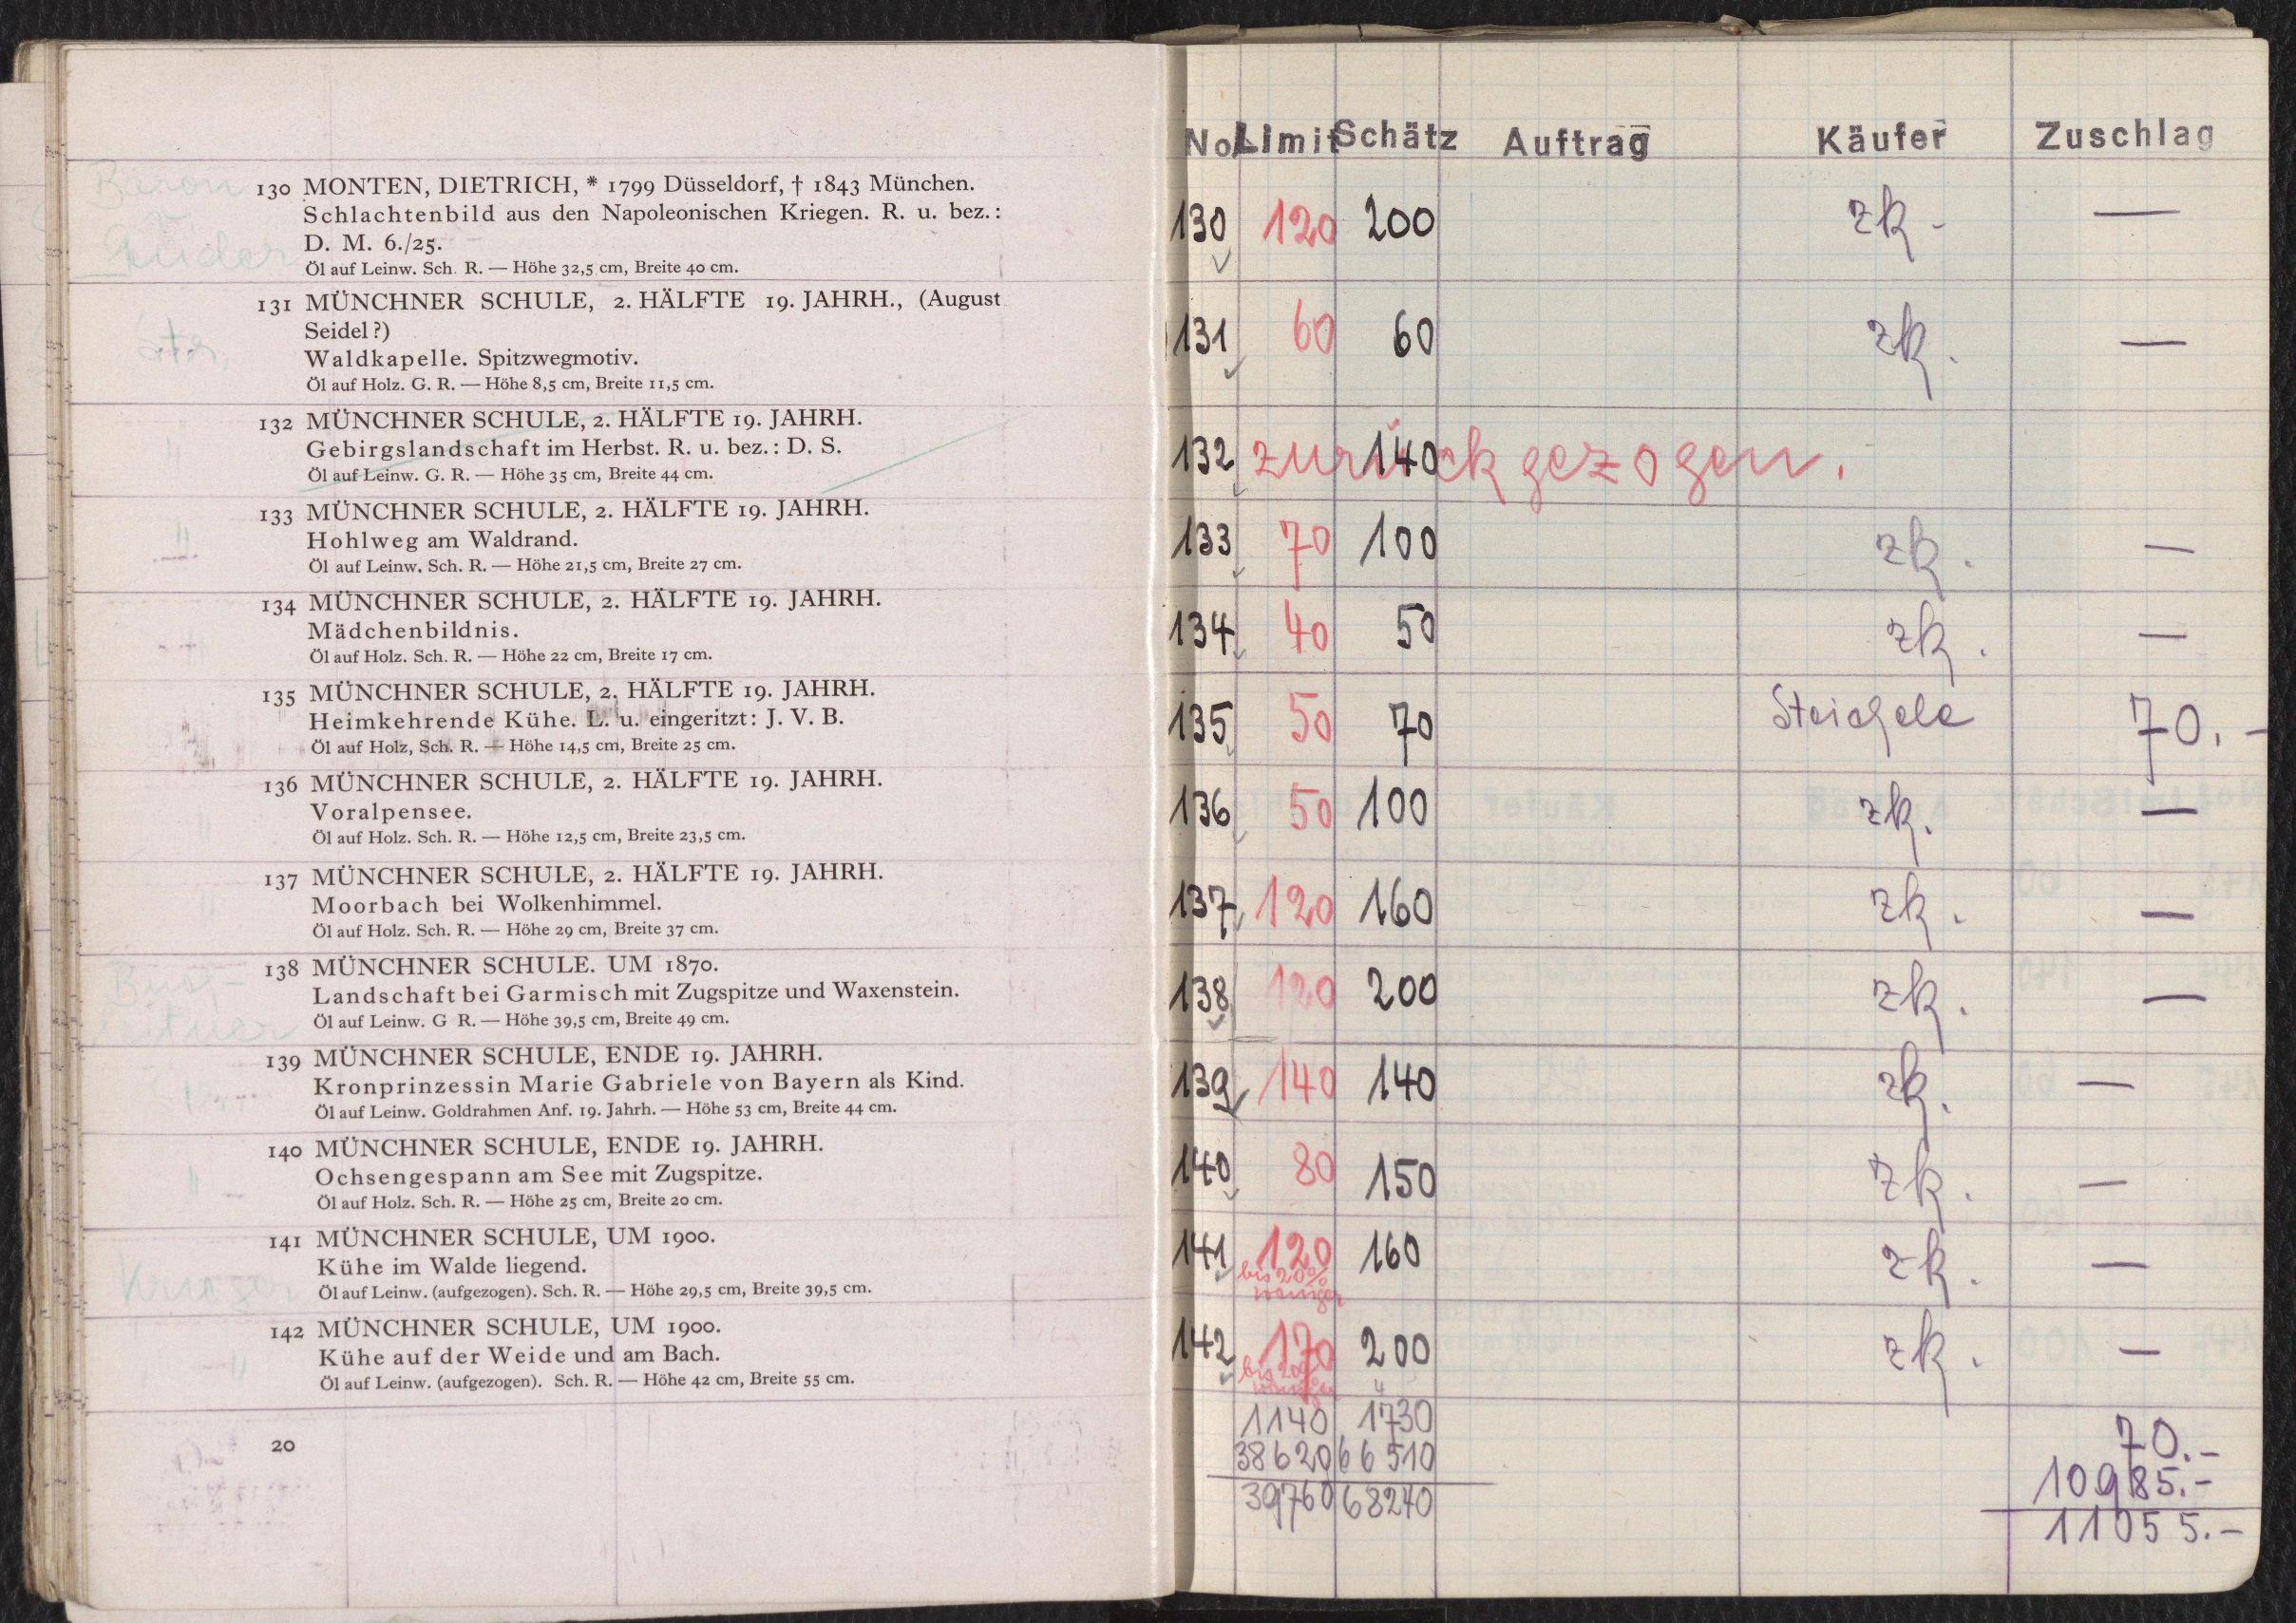 130 MONTEN, DIETRICH, * 1799 Düsseldorf, † 1843 München.
Schlachtenbild aus den Napoleonischen Kriegen. R. u. bez.:
D. M. 6./25.
Öl auf Leinw. Sch. R. — Höhe 32,5 cm, Breite 40 cm.
131 MÜNCHNER SCHULE, 2. HÄLFTE 19. JAHRH., (August
Seidel?)
Waldkapelle. Spitzwegmotiv.
Öl auf Holz. G. R. — Höhe 8,5 cm, Breite 11,5 cm.
132 MÜNCHNER SCHULE, 2. HÄLFTE 19. JAHRH.
Gebirgslandschaft im Herbst. R. u. bez.: D. S.
Öl auf Leinw. G. R. — Höhe 35 cm, Breite 44 cm.
133 MÜNCHNER SCHULE, 2. HÄLFTE 19. JAHRH.
Hohlweg am Waldrand.
Öl auf Leinw. Sch. R. — Höhe 21,5 cm, Breite 27 cm.
134 MÜNCHNER SCHULE, 2. HÄLFTE 19. JAHRH.
Mädchenbildnis.
Öl auf Holz. Sch. R. — Höhe 22 cm, Breite 17 cm.
135 MÜNCHNER SCHULE, 2. HÄLFTE 19. JAHRH.
Heimkehrende Kühe. L. u. eingeritzt: J. V. B.
Öl auf Holz, Sch. R. — Höhe 14,5 cm, Breite 25 cm.
136 MÜNCHNER SCHULE, 2. HÄLFTE 19. JAHRH.
Voralpensee.
Öl auf Holz. Sch. R. — Höhe 12,5 cm, Breite 23,5 cm.
137 MÜNCHNER SCHULE, 2. HÄLFTE 19. JAHRH.
Moorbach bei Wolkenhimmel.
Öl auf Holz. Sch. R. — Höhe 29 cm, Breite 37 cm.
138 MÜNCHNER SCHULE. UM 1870.
Landschaft bei Garmisch mit Zugspitze und Waxenstein.
Öl auf Leinw. G R. — Höhe 39,5 cm, Breite 49 cm.
139 MÜNCHNER SCHULE, ENDE 19. JAHRH.
Kronprinzessin Marie Gabriele von Bayern als Kind.
Öl auf Leinw. Goldrahmen Anf. 19. Jahrh. — Höhe 53 cm, Breite 44 cm.
140 MÜNCHNER SCHULE, ENDE 19. JAHRH.
Ochsengespann am See mit Zugspitze.
Öl auf Holz. Sch. R. — Höhe 25 cm, Breite 20 cm.
141 MÜNCHNER SCHULE, UM 1900.
Kühe im Walde liegend.
Öl auf Leinw. (aufgezogen). Sch. R. — Höhe 29,5 cm, Breite 39,5 cm.
142 MÜNCHNER SCHULE, UM 1900.
Kühe auf der Weide und am Bach.
Öl auf Leinw. (aufgezogen). Sch. R. — Höhe 42 cm, Breite 55 cm.
20
No. Limit Schätz Auftrag Käufer Zuschlag
130 120 200 zk. —
131 60 60 zk. —
132 zurückgezogen. 140
133 70 100 zk. —
134 40 50 zk. —
135 50 70 Steichele 70.-
136 50 100 zk. —
137 120 160 zk. —
138 120 200 zk. —
139 140 140 zk. —
140 80 150 zk. —
141 120 160 zk. —
bis 20%
weniger
142 170 200 zk. —
bis 20%
weniger
1140 1730 70.-
38620 66510 10985.-
39760 68240 11055.-